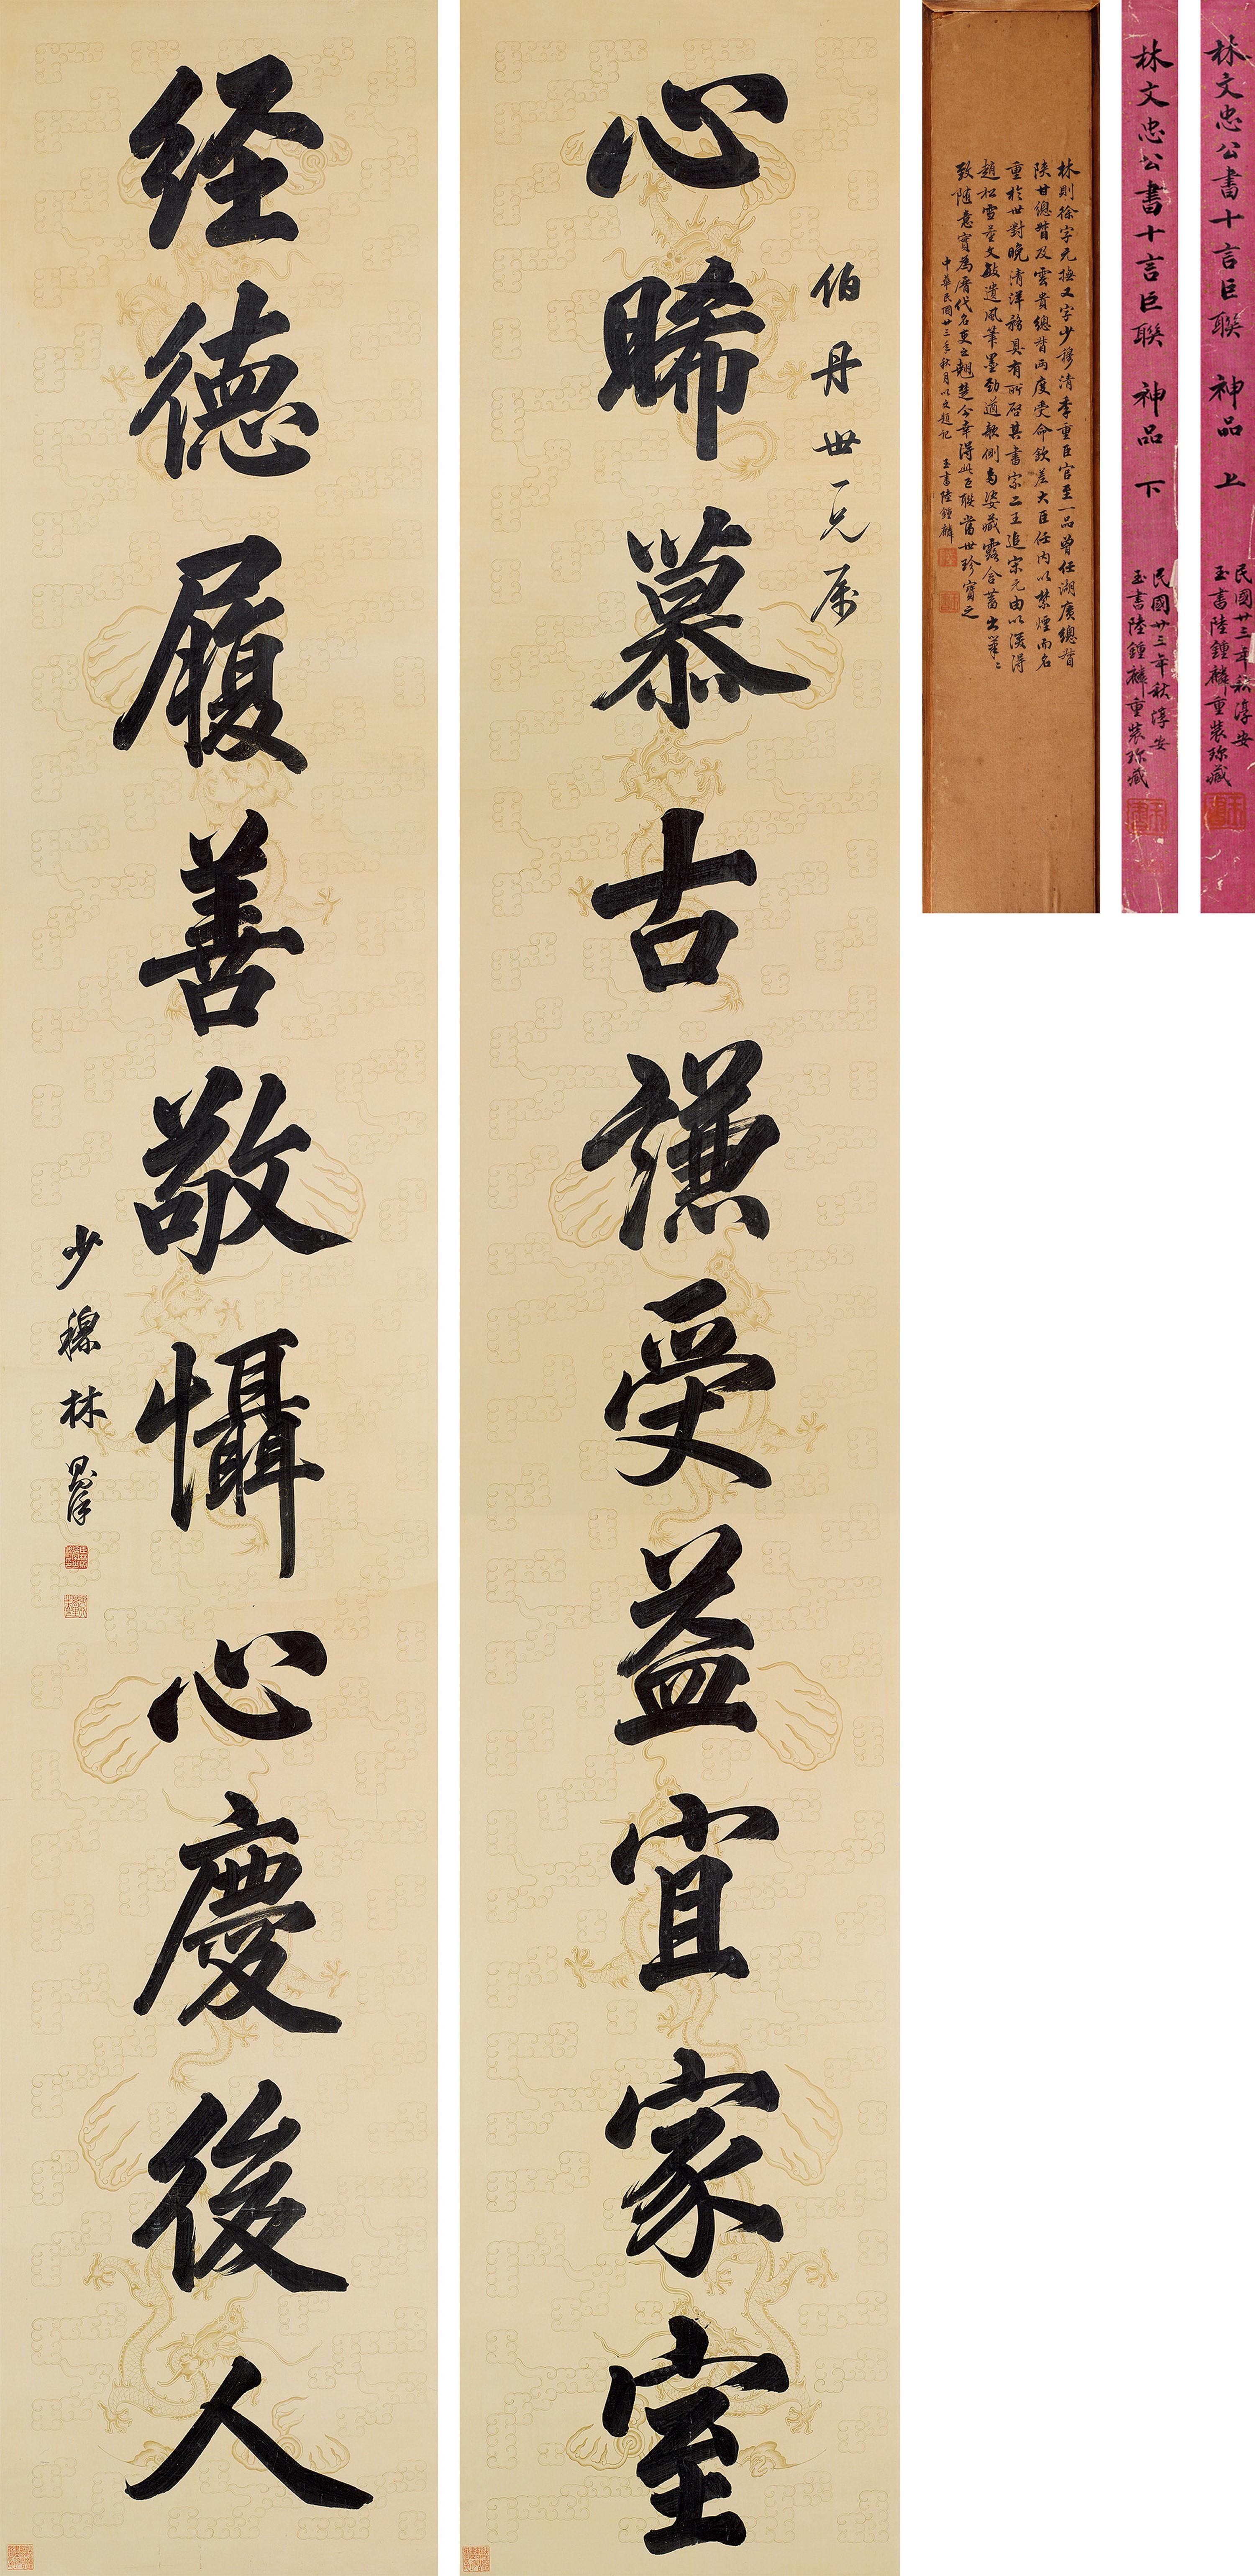 心睎慕古謙受益宜家室
伯丹世一兄属
経德履善敬懾心慶後人
少穆林則徐
林則徐字元撫又字少穆清季重臣官至一品曾任湖廣總督
陝甘總督及雲貴總督兩度受命欽差大臣任內以禁煙而名
重於世對晚清洋務具有所啓其書宗二王追宋元由以深得
趙松雪董文敏遺風筆墨勁遒欹側多姿藏露含蓄出筆
致隨意實為曆代名吏之翹楚今幸得此巨聯當世珍寶之
中華民國廿三年秋月以文題記 玉書陸鍾麟
林文忠公書十言巨聯 神品 上
民國廿三年秋淳安
玉書陸鍾麟重裝珍藏
林文忠公書十言巨聯 神品 下
民國廿三年秋淳安
玉書陸鍾麟重裝珍藏